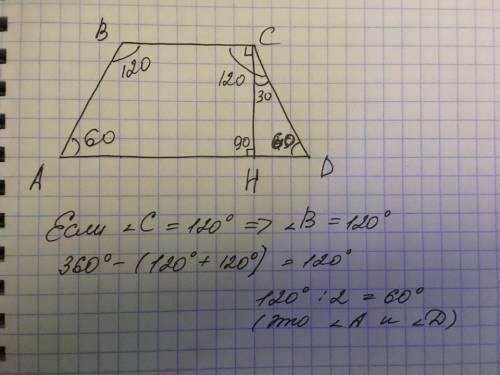 B
C
120
120
30
60
90
60
A
H
D
Если ∠C = 120° => ∠B = 120°
360° - (120° + 120°) = 120°
120° : 2 = 60°
(это ∠A и ∠D)